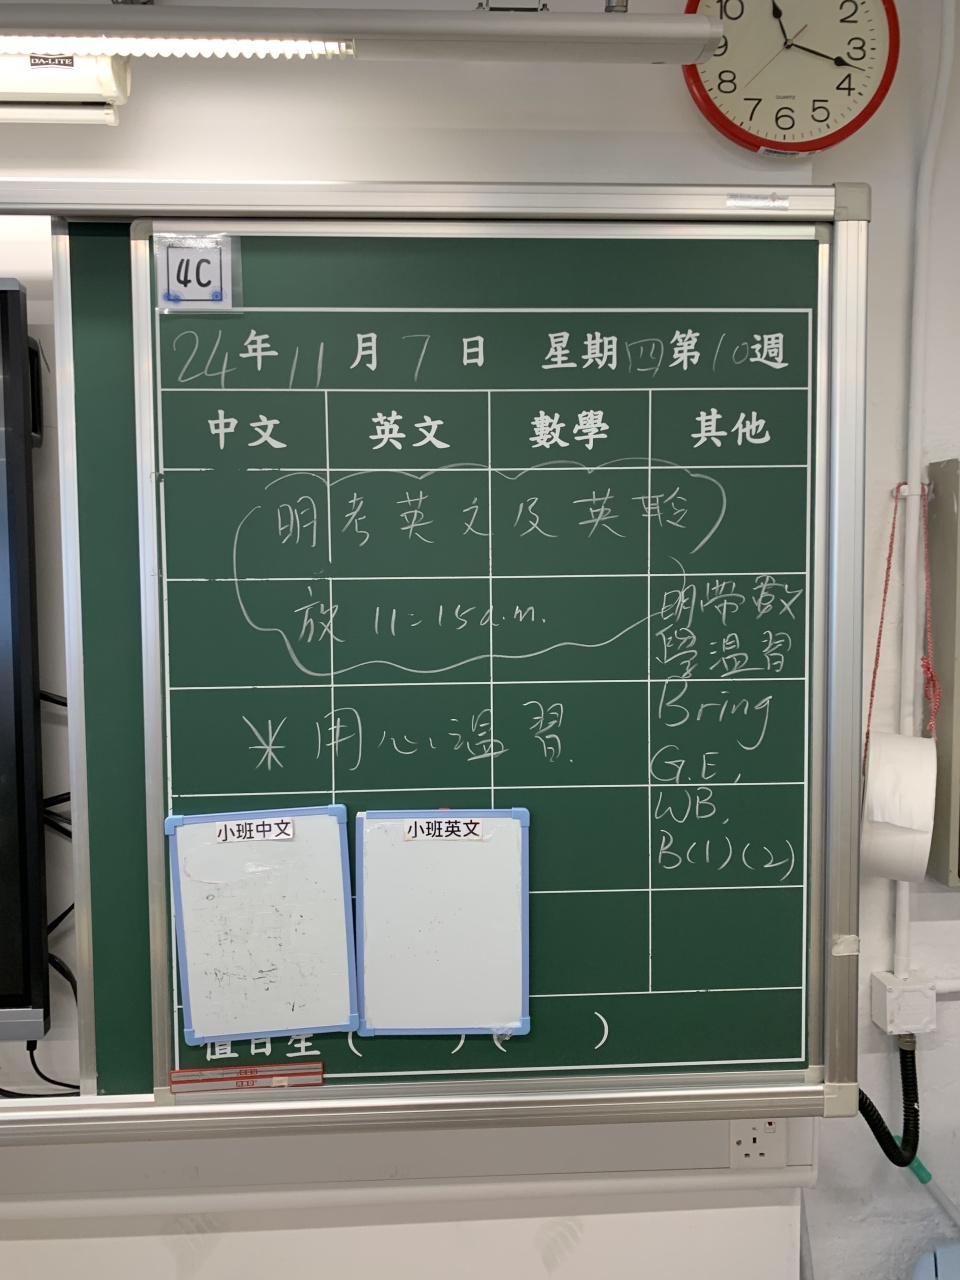 10 2
9 3
8 4
7 6 5
QUARTZ
DA-LITE
4C
24年11月7日 星期四第10週
中文 英文 數學 其他
明考英文及英聆
放 11:15a.m.
明帶數
學溫習
*用心溫習.
Bring
G.E,
WB,
B(1)(2)
小班中文
小班英文
值日生 ( ) ( )